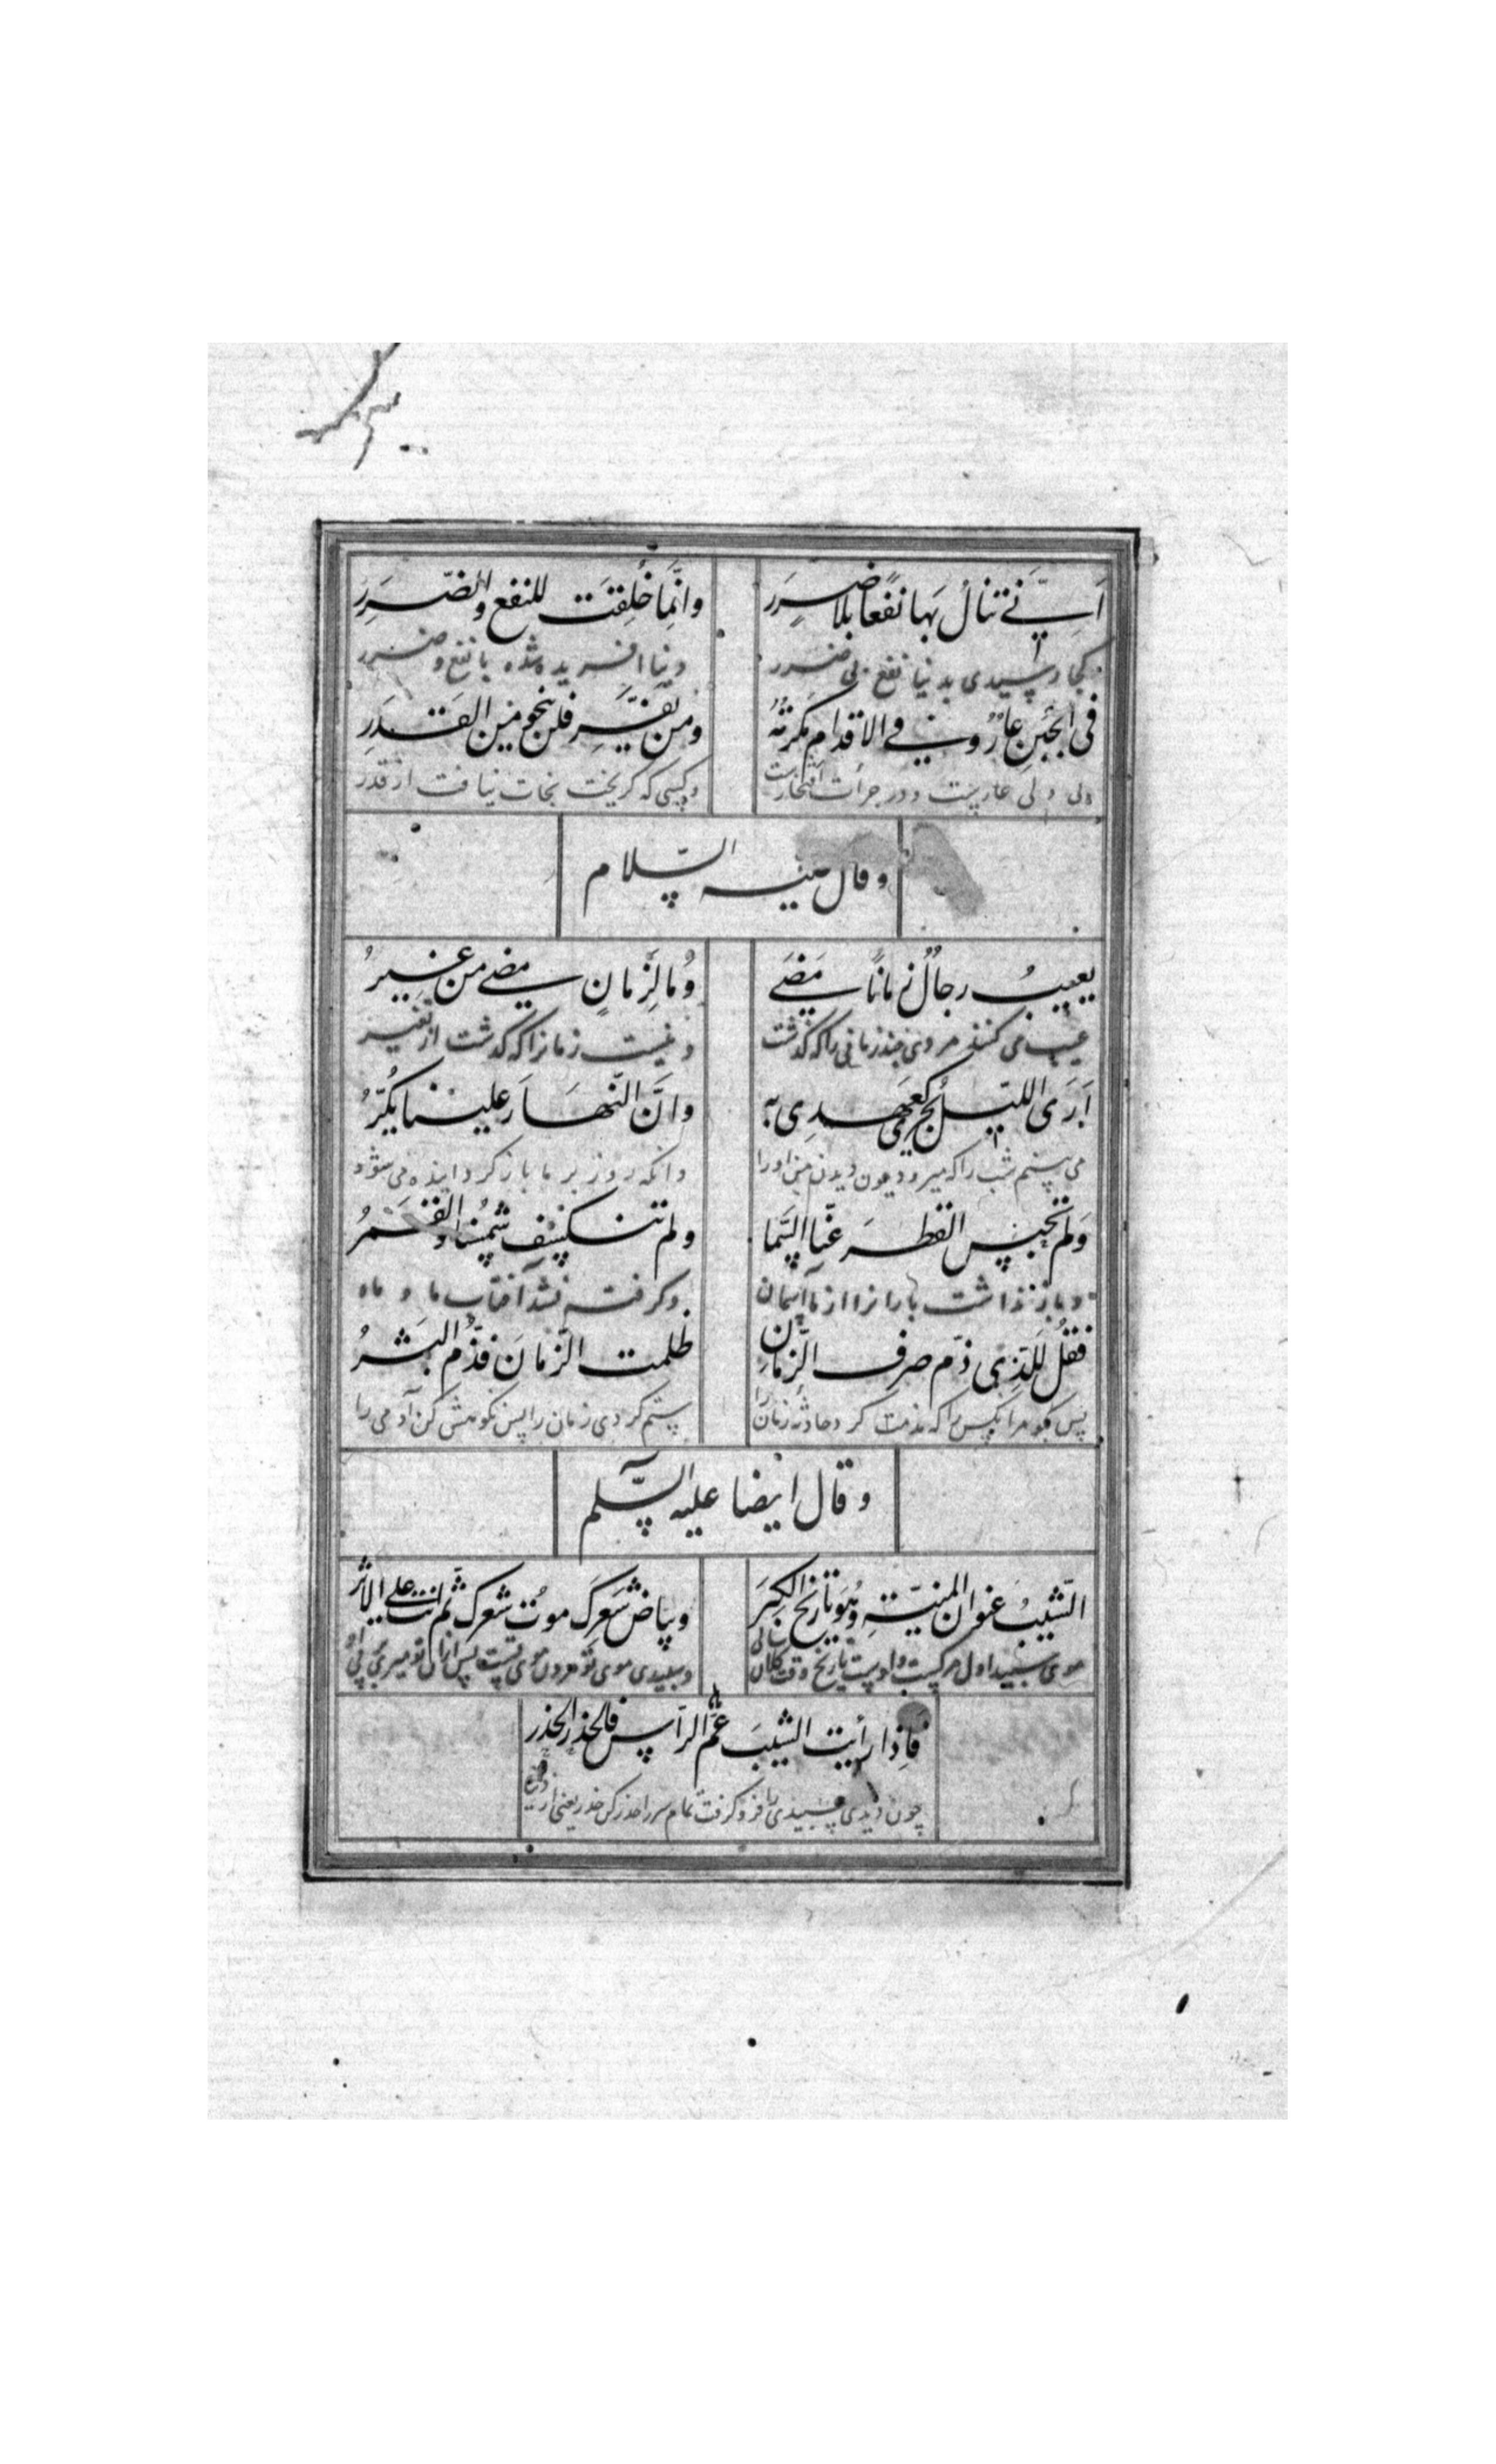 اَنّٰی تنالُ بها نفعًا بلا ضررَ
وانّما خُلِقَت للنفع والضّررِ
کجا رسیدی بدنیا نفع بی ضرر
دنیا افریده شده با نفع و ضرر
فی الجُبنِ عارٌ و فی الاقدامِ مکرُمَةٌ
ومن یَفِرَّ فلن ینجو من القدَرِ
بی دلی عاریست و در جرأت افتخارست
وکسی که کریخت نجات نیافت از قدر
وقال علیه السّلام
یعیبُ رجالٌ زمانًا مَضَی
وما لِزمانٍ مضی من غِیَرُ
عیب می کنند مردی چند زمانی را که گذشت
ونیست زمانرا که گذشت از تغییر
اَرَی اللیلَ یجری کعهدی به
وانَّ النّهارَ علینا یکُرُّ
می بینم شب را که میرود چون دیدن من اورا
وانکه روز بر ما باز کرداینده می شود
وَلم تحبس القطرَ عنّا السّما
ولم تنکسف شمسُنا والقمرُ
و بازنداشت بارانرا از ما آسمان
وکرفته نشد آفتاب ما و ماه
فقُل لِلّذِی ذمّ صرف الزّمانِ
ظلمت الزّمانَ فذُمّ البشرُ
پس بکو مر آنکس را که مذمت کرد حادثه زمان را
ستم کردی زمان را پس نکوهش کن آدمی را
و قال ایضا علیه السّلم
الشّیبُ عنوان المنیّةِ وهو تاریخ الکِبَرَ
وبیاض شَعرِکَ موتُ شعرک ثمّ انت علی الاثر
موی سپید اول مرکست و اوست تاریخ وقت کلان سالی
وسپیدی موی تو مردن موی تست پس ازان تو میری بر پی او
فاِذا رأیت الشیبَ عمّ الرأس فالحذر الحذر
چون دیدی سپیدی را فرو کرفت تمام سر را حذر کن حذر یعنی از